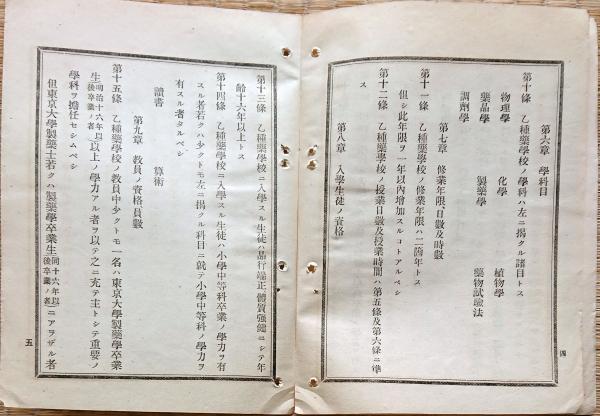 第六章 學科目
第十條 乙種藥學校ノ學科ハ左ニ揭クル諸目トス
物理學 化學 植物學
藥品學 製藥學 藥物試驗法
調劑學
第七章 修業年限日數及時數
第十一條 乙種藥學校ノ修業年限ハ二箇年トス
但シ此年限ヲ一年以內增加スルコトアルベシ
第十二條 乙種藥學校ノ授業日數及授業時間ハ第五條及第六條ニ準
ス
第八章 入學生徒ノ資格
四
第十三條 乙種藥學校ニ入學スル生徒ハ品行端正體質强健ニシテ年
齡十六年以上トス
第十四條 乙種藥學校ニ入學スル生徒ハ小學中等科卒業ノ學力ヲ有
スル者若クハ少クトモ左ニ揭クル科目ニ就テ小學中等科ノ學力ヲ
有スル者タルベシ
讀書 算術
第九章 敎員ノ資格員數
第十五條 乙種藥學校ノ敎員中少クトモ一名ハ東京大學製藥學卒業
生明治十六年以後卒業ノ者以上ノ學力アル者ヲ以テ之ニ充テ主トシテ重要ノ
學科ヲ擔任セシムベシ
但東京大學製藥士若クハ製藥學卒業生同十六年以後卒業ノ者ニアラザル者
五